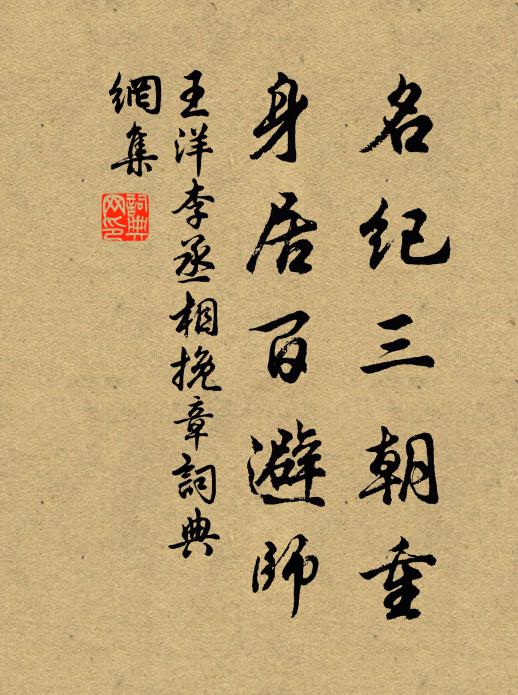 名纪三朝重
身居百避師
王洋李丞相挽章詞典
網集
詞典網印